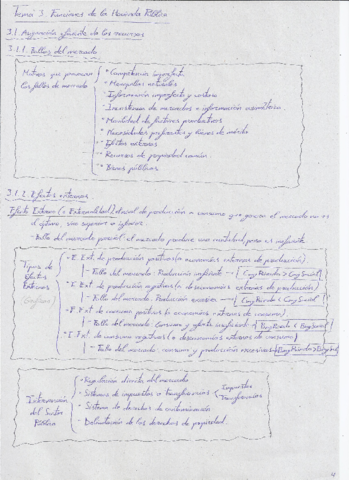 Tema 3. Funciones de la Hacienda Pública
3.1 Asignación eficiente de los recursos
3.1.1. Fallos del mercado
Motivos que provocan los fallos de mercado
* Competencia imperfecta
* Monopolios naturales
* Información imperfecta y costosa
* Inexistencia de mercados e información asimétrica.
* Movilidad de factores productivos
* Necesidades preferentes y bienes de mérito
* Efectos externos
* Recursos de propiedad común
* Bienes públicos
3.1.2. Efectos externos
Efecto Externo (o Externalidad): nivel de producción o consumo que genera el mercado no es
el óptimo, sino superior o inferior.
- Fallo del mercado parcial: el mercado produce una cantidad pero es ineficiente
Tipos de Efectos Externos
(Gráficos)
* E. Ext. de producción positivo (o economías externas de producción).
- Fallo del mercado. Producción insuficiente →
* E. Ext. de producción negativo (o deseconomías externas de producción)
- Fallo del mercado. Producción excesiva →
* E. Ext. de consumo positivo (o economías externas de consumo).
- Fallo del mercado. Consumo y oferta insuficiente
* E. Ext. de consumo negativo (o deseconomías externas de consumo)
- Fallo del mercado, consumo y producción excesivos
Intervención del Sector Público
* Regulación directa del mercado
* Sistemas de impuestos o transferencias
Impuestos
Transferencias
* Sistema de derechos de contaminación
* Delimitación de los derechos de propiedad.
4